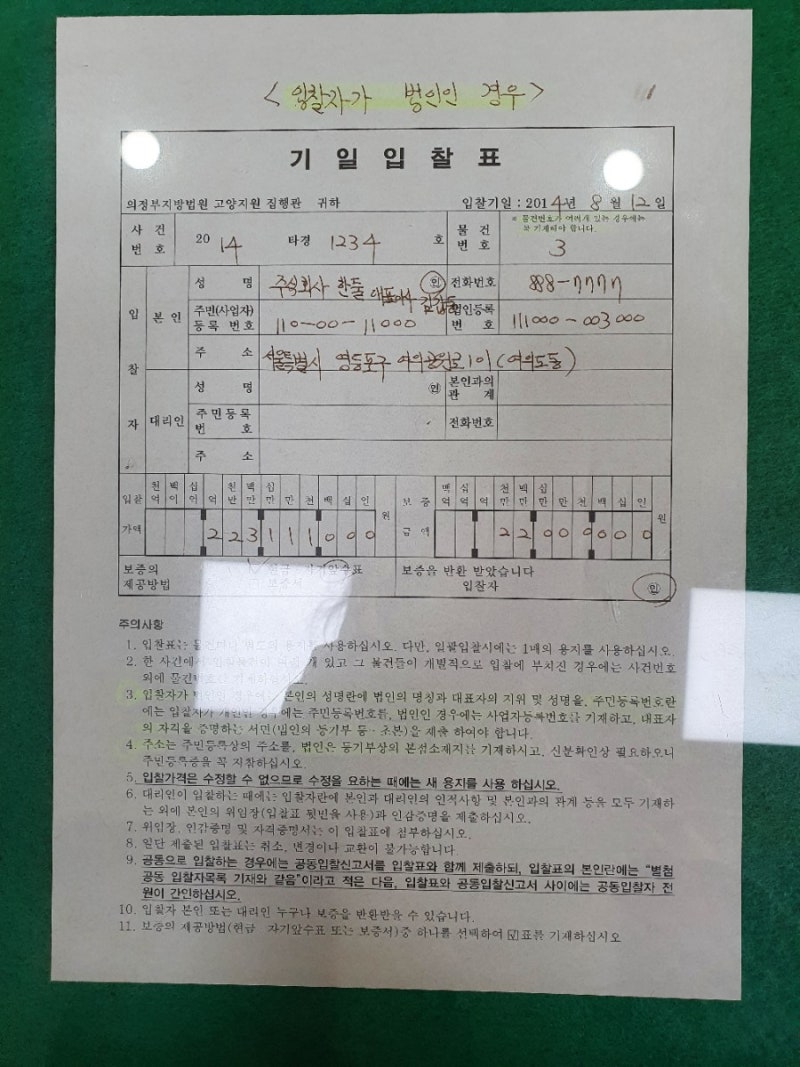 <입찰자가 법인인 경우>
기 일 입 찰 표
의정부지방법원 고양지원 집행관 귀하 입찰기일 : 2014년 8월 12일
사건번호 2014 타경 1234 호 물건번호 ※ 물건번호가 여러개 있는 경우에는 꼭 기재해야 합니다. 3
입찰자 본인 성명 주식회사 한돌 대표이사 ㊞ 전화번호 888-7777
주민(사업자)등록번호 110-00-11000 법인등록번호 111000-003000
주소 서울특별시 영등포구 여의공원로 101 (여의도동)
대리인 성명 ㊞ 본인과의 관계
주민등록번호 전화번호
주소
입찰가액 천억 백억 십억 억 천만 백만 십만 만 천 백 십 일 223111000 원 보증금액 백억 십억 억 천만 백만 십만 만 천 백 십 일 22000000 원
보증의 제공방법 보증을 반환 받았습니다
입찰자 ㊞
주의사항
1. 입찰표는 사용하십시오. 다만, 일괄입찰시에는 1매의 용지를 사용하십시오.
2. 한 사건에서 있고 그 물건들이 개별적으로 입찰에 부쳐진 경우에는 사건번호
외에 물건번호를
3. 입찰자가 법인인 경우에는 본인의 성명란에 법인의 명칭과 대표자의 지위 및 성명을, 주민등록번호란
에는 입찰자가 개인인 경우에는 주민등록번호를, 법인인 경우에는 사업자등록번호를 기재하고, 대표자
의 자격을 증명하는 서면(법인의 등기부 등·초본)을 제출 하여야 합니다.
4. 주소는 주민등록상의 주소를, 법인은 등기부상의 본점소재지를 기재하시고, 신분확인상 필요하오니
주민등록증을 꼭 지참하십시오.
5. 입찰가격은 수정할 수 없으므로 수정을 요하는 때에는 새 용지를 사용 하십시오.
6. 대리인이 입찰하는 때에는 입찰자란에 본인과 대리인의 인적사항 및 본인과의 관계 등을 모두 기재하
는 외에 본인의 위임장(입찰표 뒷면을 사용)과 인감증명을 제출하십시오.
7. 위임장, 인감증명 및 자격증명서는 이 입찰표에 첨부하십시오.
8. 일단 제출된 입찰표는 취소, 변경이나 교환이 불가능합니다.
9. 공동으로 입찰하는 경우에는 공동입찰신고서를 입찰표와 함께 제출하되, 입찰표의 본인란에는 "별첨
공동 입찰자목록 기재와 같음"이라고 적은 다음, 입찰표와 공동입찰신고서 사이에는 공동입찰자 전
원이 간인하십시오.
10. 입찰자 본인 또는 대리인 누구나 보증을 반환받을 수 있습니다.
11. 보증의 제공방법(현금 자기앞수표 또는 보증서)중 하나를 선택하여 ☑표를 기재하십시오